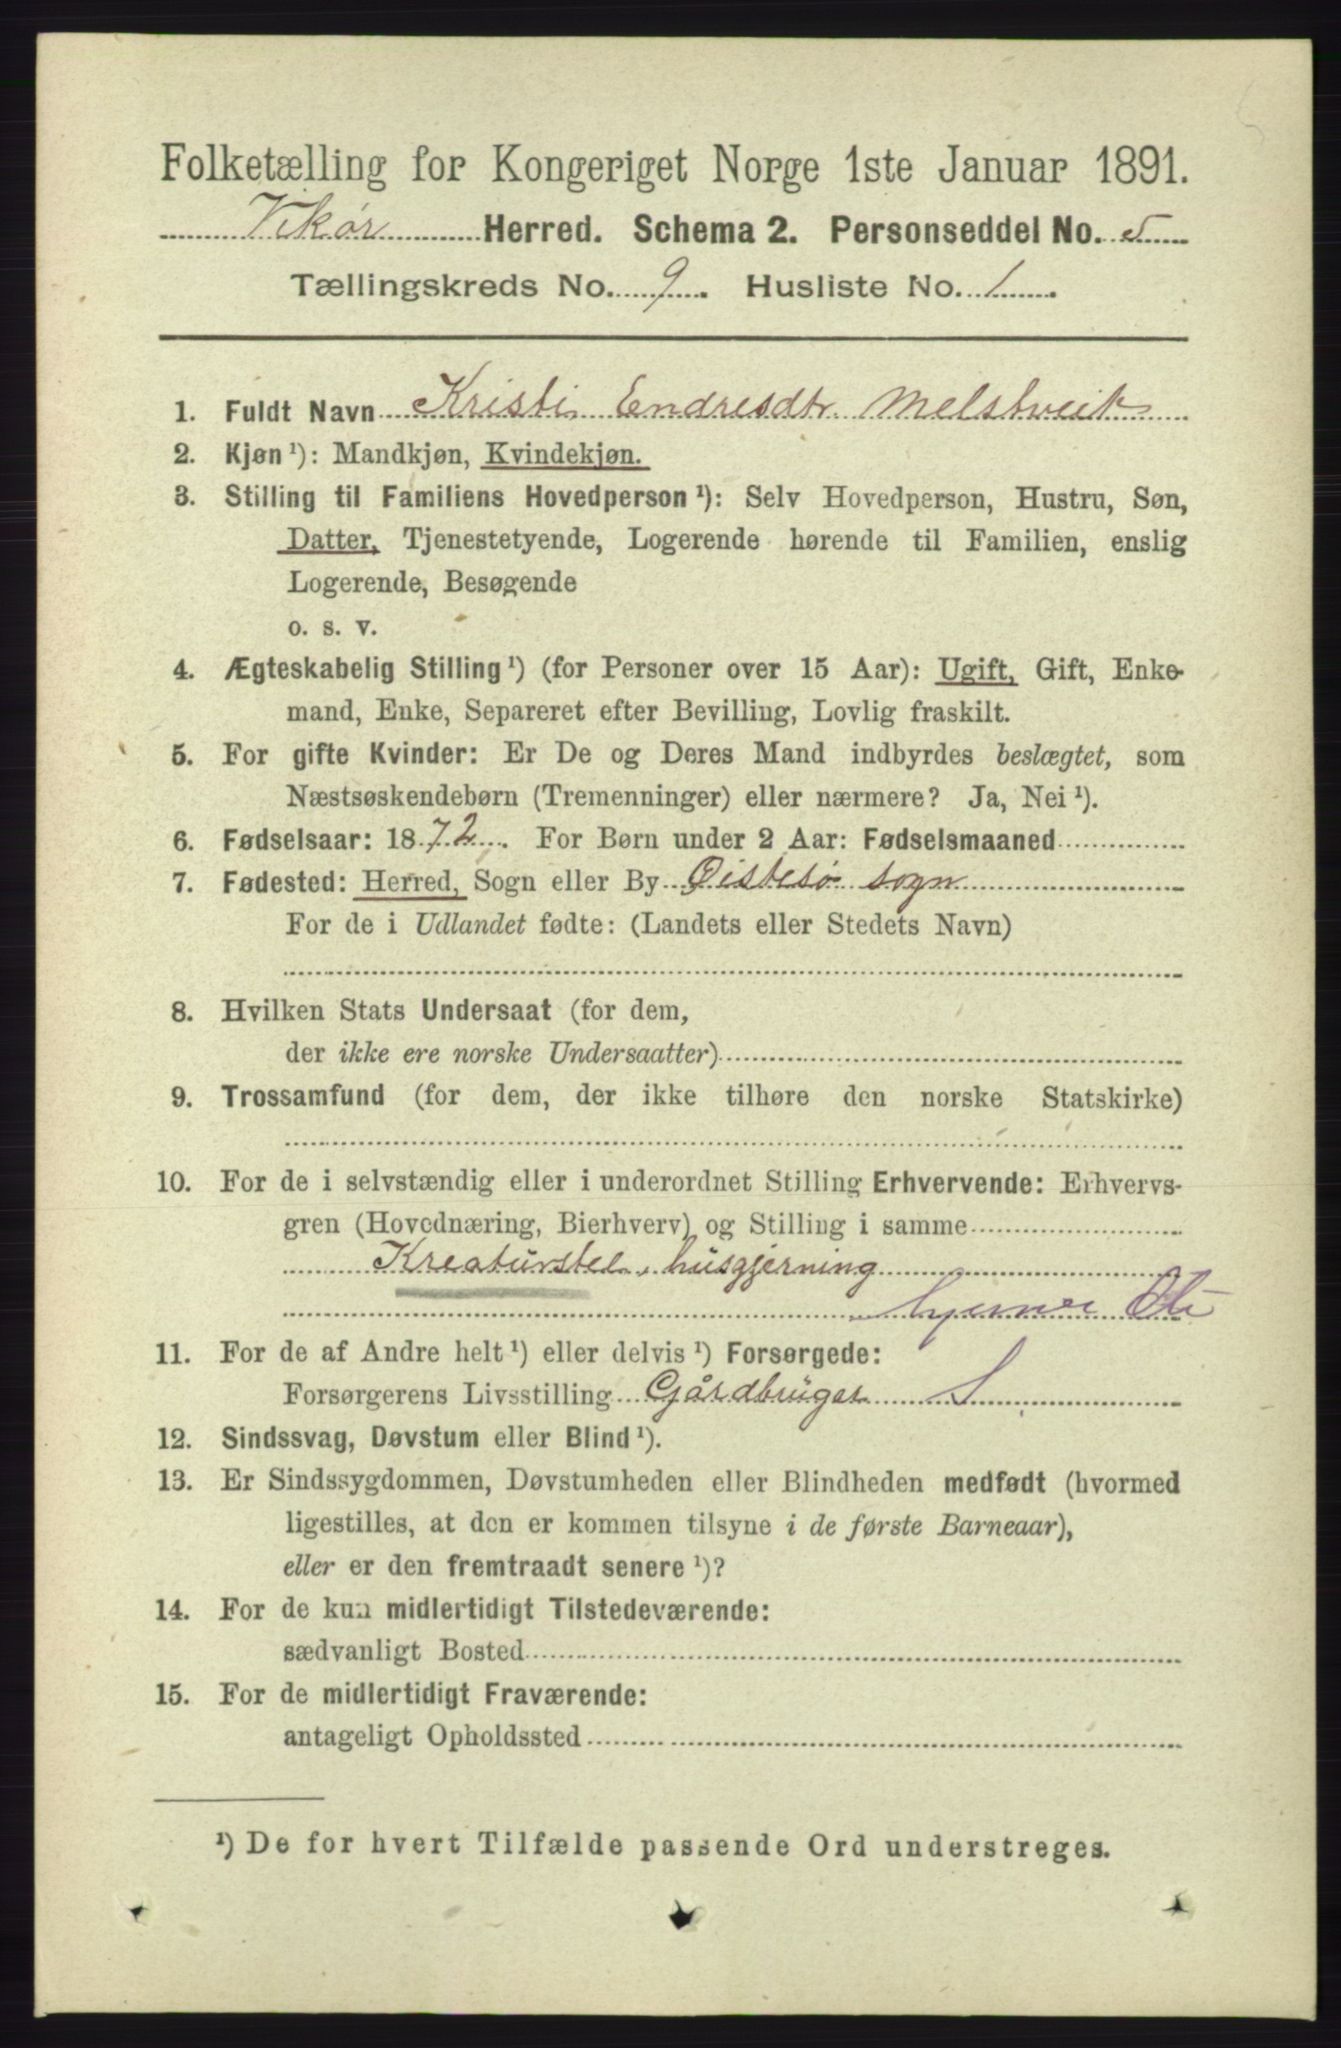 Folketælling for Kongeriget Norge 1ste Januar 1891.
Vikør Herred. Schema 2. Personseddel No. 5
Tællingskreds No. 9. Husliste No. 1.
1. Fuldt Navn Kristi Endresdtr. Melstveit
2. Kjøn ¹): Mandkjøn, Kvindekjøn.
3. Stilling til Familiens Hovedperson ¹): Selv Hovedperson, Hustru, Søn,
Datter, Tjenestetyende, Logerende hørende til Familien, enslig
Logerende, Besøgende
o. s. v.
4. Ægteskabelig Stilling ¹) (for Personer over 15 Aar): Ugift, Gift, Enke-
mand, Enke, Separeret efter Bevilling, Lovlig fraskilt.
5. For gifte Kvinder: Er De og Deres Mand indbyrdes beslægtet, som
Næstsøskendebørn (Tremenninger) eller nærmere? Ja, Nei ¹).
6. Fødselsaar: 1872. For Børn under 2 Aar: Fødselsmaaned
7. Fødested: Herred, Sogn eller By Øistesø sogn
For de i Udlandet fødte: (Landets eller Stedets Navn)
8. Hvilken Stats Undersaat (for dem,
der ikke ere norske Undersaatter)
9. Trossamfund (for dem, der ikke tilhøre den norske Statskirke)
10. For de i selvstændig eller i underordnet Stilling Erhvervende: Erhvervs-
gren (Hovednæring, Bierhverv) og Stilling i samme
Kreaturstel, husgjerning
hjemme
11. For de af Andre helt ¹) eller delvis ¹) Forsørgede:
Forsørgerens Livsstilling Gårdbruger S
12. Sindssvag, Døvstum eller Blind ¹).
13. Er Sindssygdommen, Døvstumheden eller Blindheden medfødt (hvormed
ligestilles, at den er kommen tilsyne i de første Barneaar),
eller er den fremtraadt senere ¹)?
14. For de kun midlertidigt Tilstedeværende:
sædvanligt Bosted
15. For de midlertidigt Fraværende:
antageligt Opholdssted
¹) De for hvert Tilfælde passende Ord understreges.